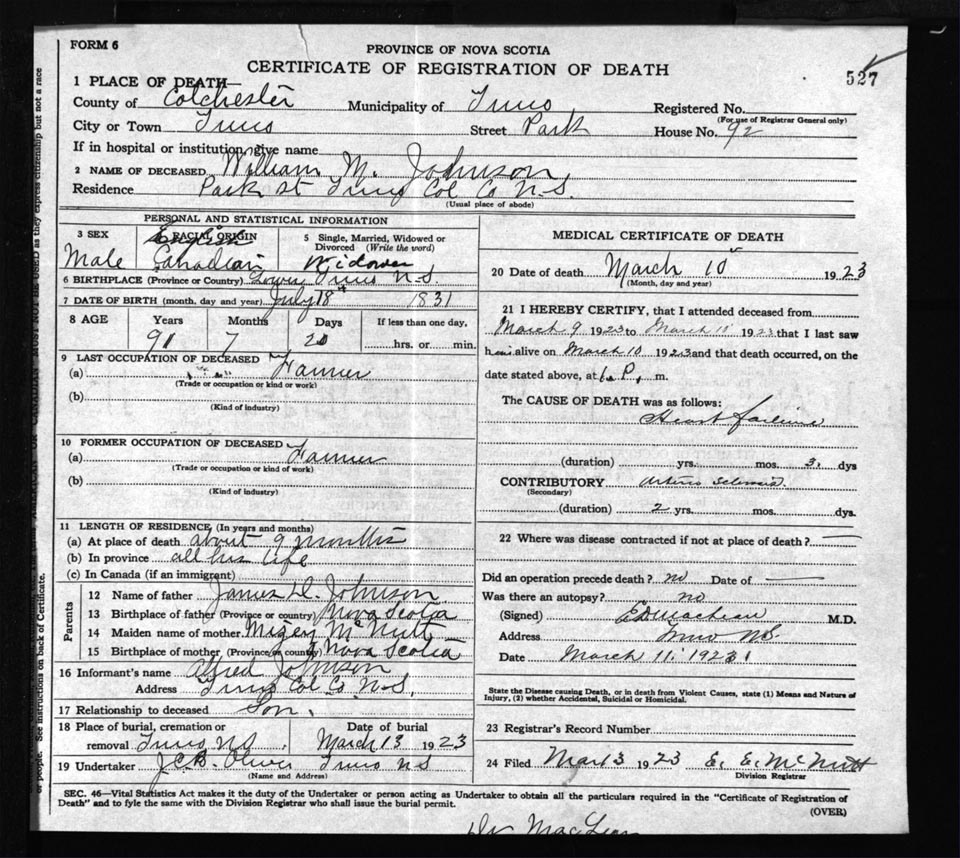 FORM 6
PROVINCE OF NOVA SCOTIA
CERTIFICATE OF REGISTRATION OF DEATH
527
1 PLACE OF DEATH—
County of Colchester Municipality of Truro Registered No.
(For use of Registrar General only)
City or Town Truro Street Park House No. 92
If in hospital or institution, give name
2 NAME OF DECEASED William M. Johnson
Residence Park St Truro Col Co N.S.
(Usual place of abode)
PERSONAL AND STATISTICAL INFORMATION
3 SEX Male
RACIAL ORIGIN English Canadian
5 Single, Married, Widowed or Divorced (Write the word) Widower
6 BIRTHPLACE (Province or Country) Lower Truro N.S.
7 DATE OF BIRTH (month, day and year) July 18th 1831
8 AGE Years Months Days If less than one day,
91 7 20 hrs. or min.
9 LAST OCCUPATION OF DECEASED
(a) Farmer
(Trade or occupation or kind or work)
(b)
(Kind of industry)
10 FORMER OCCUPATION OF DECEASED
(a) Farmer
(Trade or occupation or kind of work)
(b)
(Kind of industry)
11 LENGTH OF RESIDENCE (In years and months)
(a) At place of death about 9 months
(b) In province all his life
(c) In Canada (if an immigrant)
Parents
12 Name of father James D. Johnson
13 Birthplace of father (Province or country) Nova Scotia
14 Maiden name of mother McNutt
15 Birthplace of mother (Province or country) Nova Scotia
16 Informant's name Alfred Johnson
Address Truro Col Co N.S.
17 Relationship to deceased Son.
18 Place of burial, cremation or removal Truro N.S.
Date of burial March 13 1923
19 Undertaker Truro N S
(Name and Address)
MEDICAL CERTIFICATE OF DEATH
20 Date of death March 10 1923
(Month, day and year)
21 I HEREBY CERTIFY, that I attended deceased from
March 9 1923 to March 1923 that I last saw
him alive on March 10 1923 and that death occurred, on the
date stated above, at 6 P. m.
The CAUSE OF DEATH was as follows:
Heart failure
(duration) yrs. mos. 3 dys
CONTRIBUTORY Arterio sclerosis
(Secondary)
(duration) 2 yrs. mos. dys.
22 Where was disease contracted if not at place of death? —
Did an operation precede death? no Date of —
Was there an autopsy? no
(Signed) M.D.
Address Truro N.S.
Date March 11 1923
State the Disease causing Death, or in death from Violent Causes, state (1) Means and Nature of
Injury, (2) whether Accidental, Suicidal or Homicidal.
23 Registrar's Record Number
24 Filed Mar 13 1923 E. E. McNutt
Division Registrar
SEC. 46—Vital Statistics Act makes it the duty of the Undertaker or person acting as Undertaker to obtain all the particulars required in the "Certificate of Registration of
Death" and to fyle the same with the Division Registrar who shall issue the burial permit.
(OVER)
Dr MacLean
of people. See instructions on back of Certificate.
MUST NOT BE USED as they express citizenship but not a race